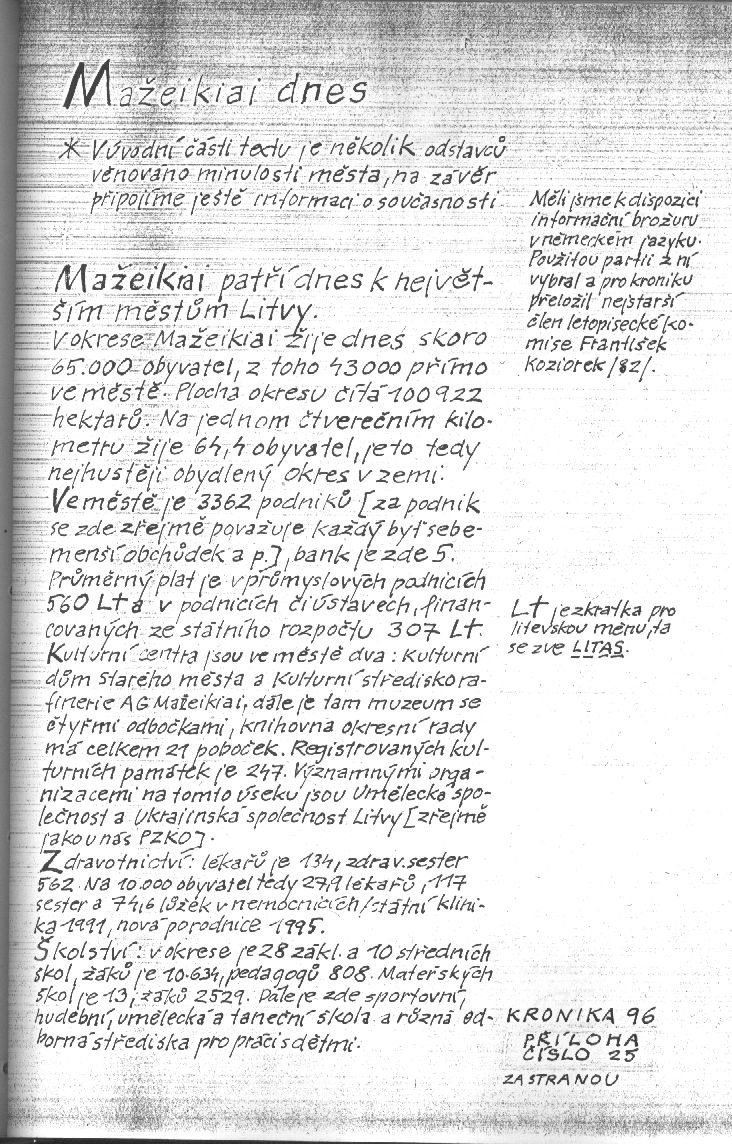 Mažeikiai dnes
* V úvodní části textu je několik odstavců
věnováno minulosti města, na závěr
připojíme ještě informaci o současnosti
Měli jsme k dispozici
informační brožuru
v německém jazyku.
Použitou partii z ní
vybral a pro kroniku
přeložil nejstarší
člen letopisecké ko-
mise František
Koziorek /82/.
Mažeikiai patří dnes k největ-
ším městům Litvy.
V okrese Mažeikiai žije dnes skoro
65.000 obyvatel, z toho 43000 přímo
ve městě. Plocha okresu čítá 100922
hektarů. Na jednom čtverečním kilo-
metru žije 64,4 obyvatel, je to tedy
nejhustěji obydlený okres v zemi.
Ve městě je 3362 podniků [za podnik
se zde zřejmě považuje každý byť sebe-
menší obchůdek a p.], bank je zde 5.
Průměrný plat je v průmyslových podnicích
560 Lt a v podnicích či ústavech, finan-
covaných ze státního rozpočtu 307 Lt.
Lt je zkratka pro
litevskou měnu, ta
se zve LITAS.
Kulturní centra jsou ve městě dva: Kulturní
dům starého města a Kulturní středisko ra-
finerie AG Mažeikiai, dále je tam muzeum se
čtyřmi odbočkami, knihovna okresní rady
má celkem 21 poboček. Registrovaných kul-
turních památek je 247. Významnými orga-
nizacemi na tomto úseku jsou Umělecká spo-
lečnost a Ukrajinská společnost Litvy [zřejmě
jako u nás PZKO].
Zdravotnictví: lékařů je 134, zdrav. sester
562. Na 10.000 obyvatel tedy 27,9 lékařů, 117
sester a 74,6 lůžek v nemocnicích /státní klini-
ka 1991, nová porodnice 1995.
Školství: v okrese je 28 zákl. a 10 středních
škol, žáků je 10.634, pedagogů 808. Mateřských
škol je 13, žáků 2529. Dále je zde sportovní,
hudební, umělecká a taneční škola a různá od-
borná střediska pro práci s dětmi.
KRONIKA 96
PŘÍLOHA
ČÍSLO 25
ZA STRANOU